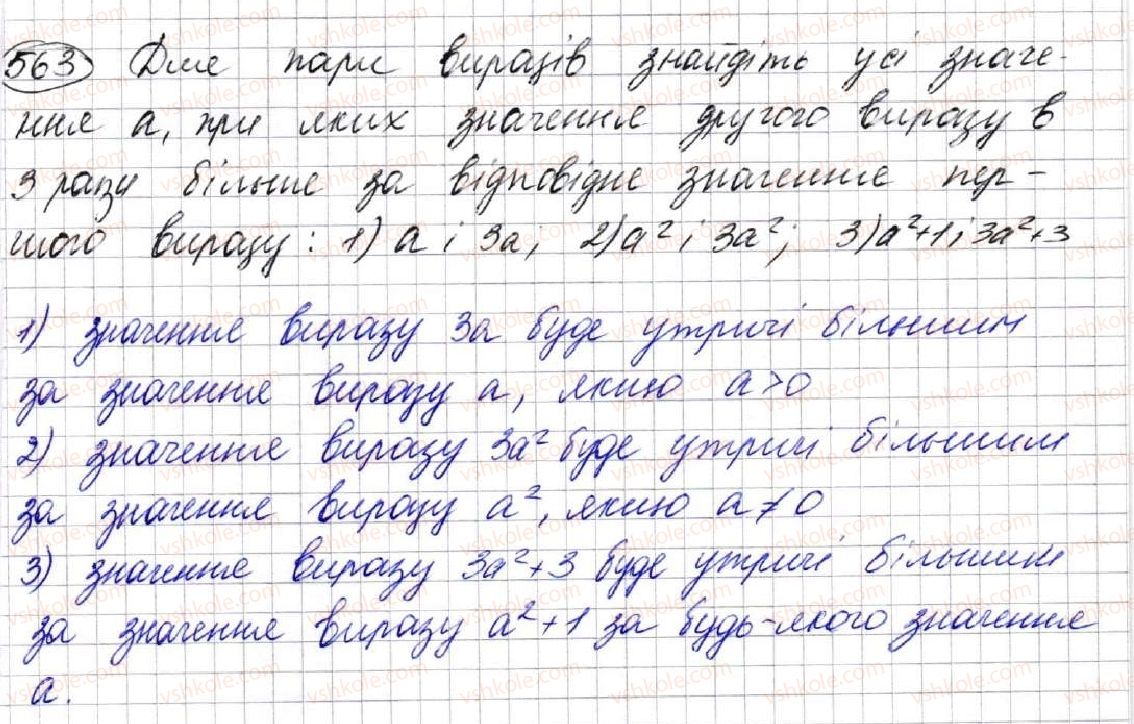 563 Для пари виразів знайдіть усі значе-
ння a, при яких значення другого виразу в
3 рази більше за відповідне значення пер-
шого виразу: 1) a і 3a; 2) a² і 3a²; 3) a²+1 і 3a²+3
1) значення виразу 3a буде утричі більшим
за значення виразу a, якщо a>0
2) значення виразу 3a² буде утричі більшим
за значення виразу a², якщо a≠0
3) значення виразу 3a²+3 буде утричі більшим
за значення виразу a²+1 за будь-якого значення
a.